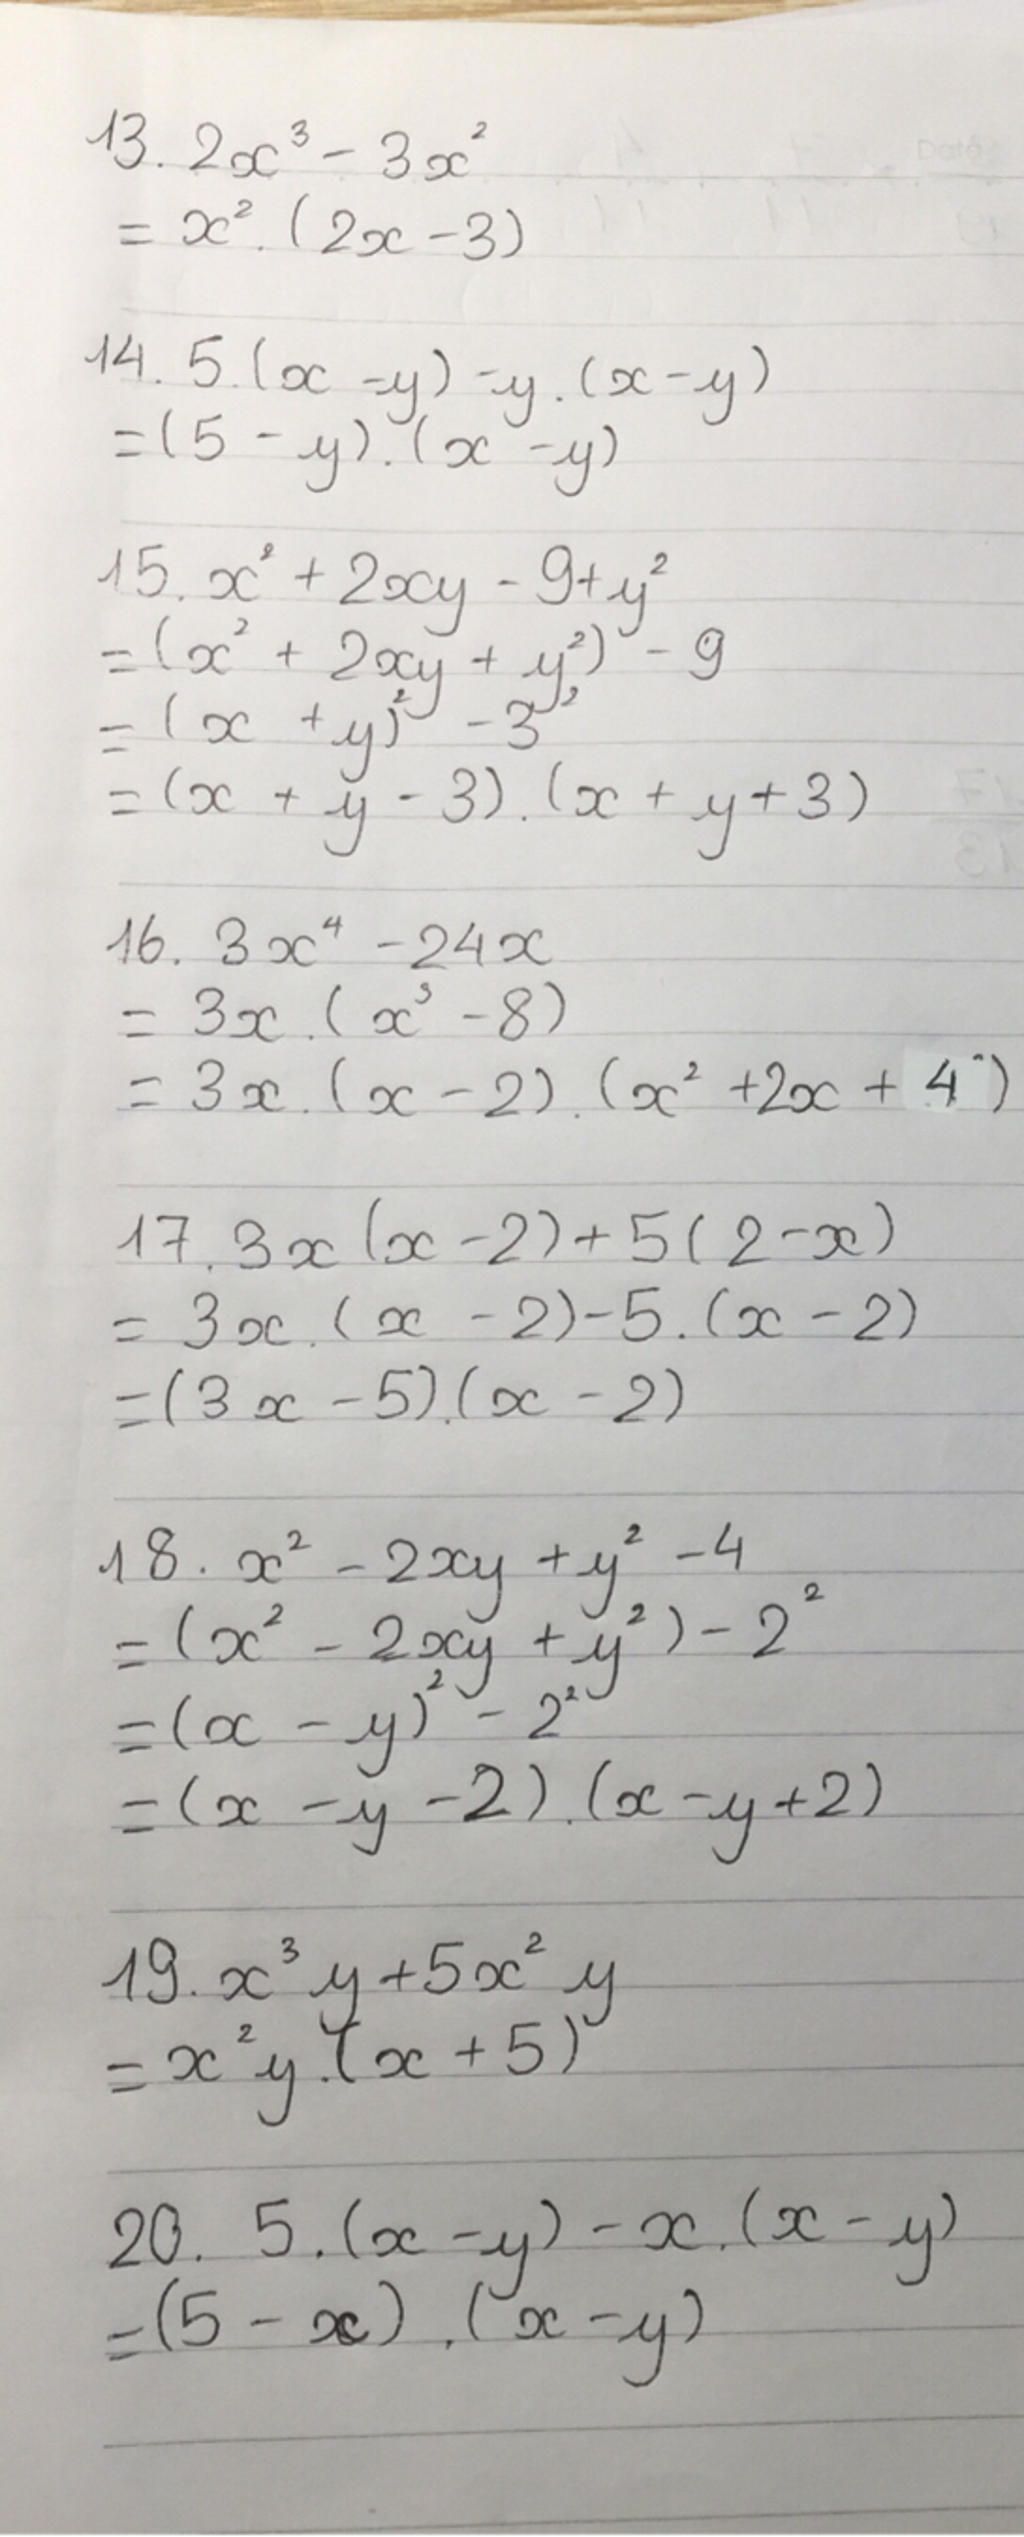 13. 2x³ - 3x²
= x² . (2x - 3)
14. 5.(x - y) - y.(x - y)
= (5 - y).(x - y)
15. x² + 2xy - 9 + y²
= (x² + 2xy + y²) - 9
= (x + y)² - 3²
= (x + y - 3).(x + y + 3)
16. 3x⁴ - 24x
= 3x.(x³ - 8)
= 3x.(x - 2).(x² + 2x + 4)
17. 3x(x - 2) + 5(2 - x)
= 3x.(x - 2) - 5.(x - 2)
= (3x - 5).(x - 2)
18. x² - 2xy + y² - 4
= (x² - 2xy + y²) - 2²
= (x - y)² - 2²
= (x - y - 2).(x - y + 2)
19. x³y + 5x²y
= x²y.(x + 5)
20. 5.(x - y) - x.(x - y)
= (5 - x).(x - y)